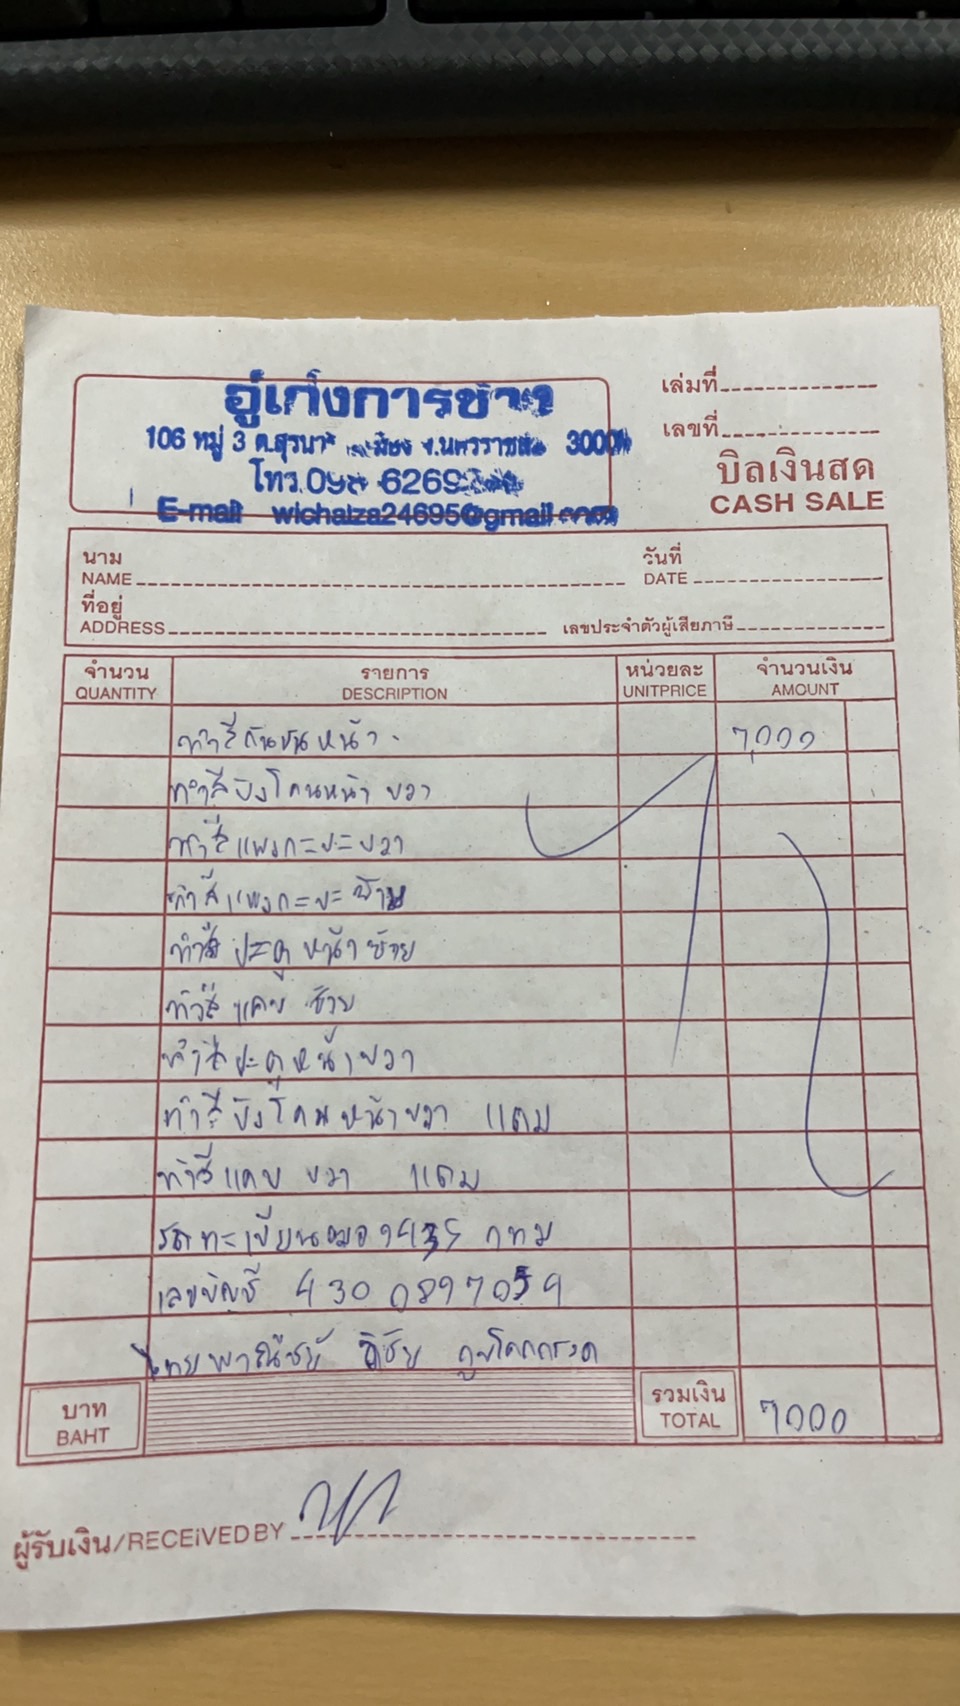 อู่เก่งการช่าง
106 หมู่ 3 ต.สุรนารี อ.เมือง จ.นครราชสีมา 30000
โทร.098 6269
E-mail wichaiza24695@gmail.com
เล่มที่
เลขที่
บิลเงินสด
CASH SALE
นาม
NAME
วันที่
DATE
ที่อยู่
ADDRESS
เลขประจำตัวผู้เสียภาษี
จำนวน รายการ หน่วยละ จำนวนเงิน
QUANTITY DESCRIPTION UNITPRICE AMOUNT
ทำสีกันชนหน้า 7,000
ทำสีบังโคนหน้า ขวา
ทำสีแพงกะบะขวา
ทำสีแพงกะบะซ้าย
ทำสีประตูหน้าซ้าย
ทำสีแคบซ้าย
ทำสีประตูหน้าขวา
ทำสีบังโคนหน้าขวา แถม
ทำสีแคบ ขวา แถม
รถทะเบียน 9435 กทม
เลขบัญชี 430 0897059
ไทยพาณิชย์ วิชัย
บาท
BAHT
รวมเงิน
TOTAL
7000
ผู้รับเงิน/RECEIVED BY